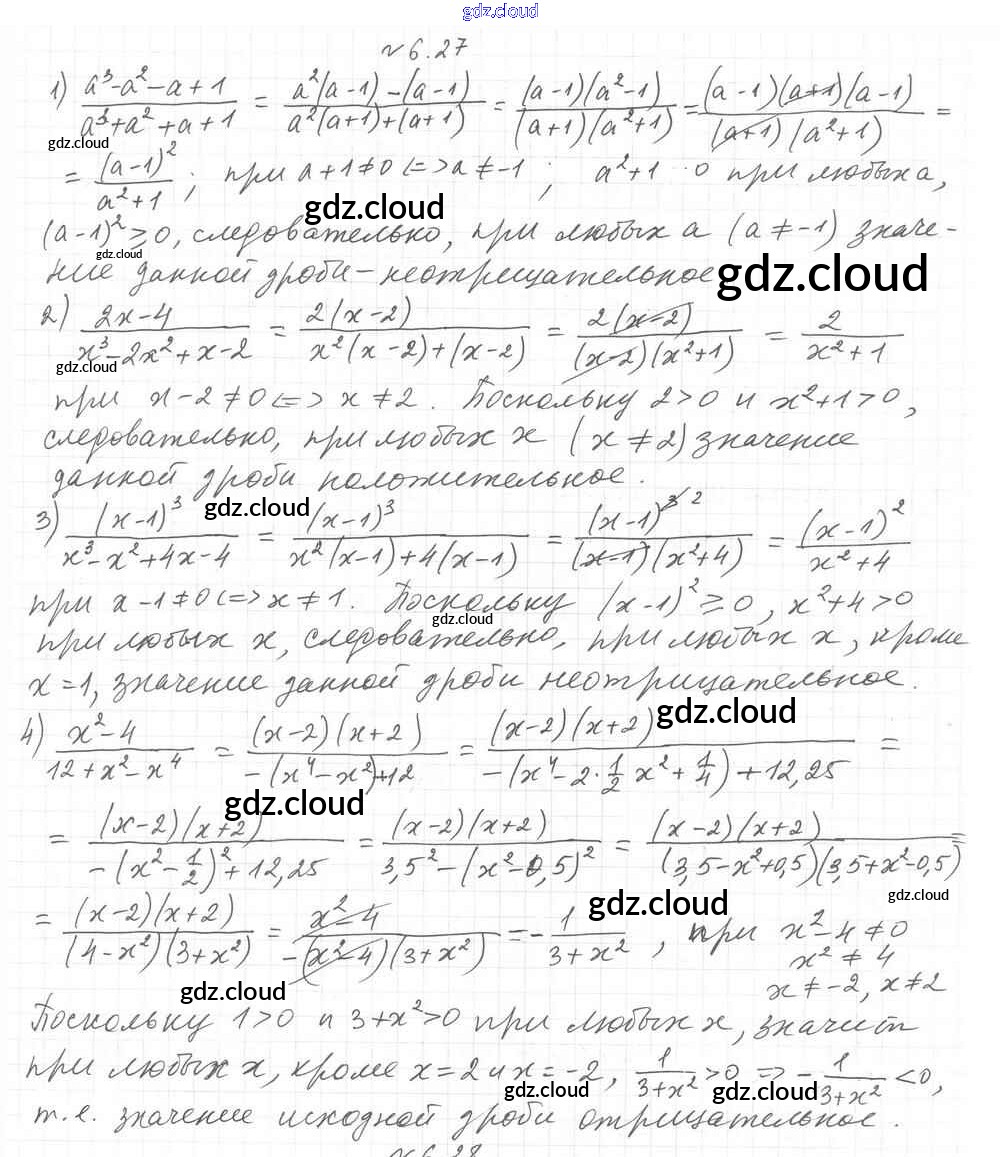 gdz.cloud
№ 6.27
1) (a³-a²-a+1)/(a³+a²+a+1) = (a²(a-1)-(a-1))/(a²(a+1)+(a+1)) = ((a-1)(a²-1))/((a+1)(a²+1)) = ((a-1)(a+1)(a-1))/((a+1)(a²+1)) =
gdz.cloud
= (a-1)²/(a²+1); при a+1≠0 <=> a≠-1; a²+1 0 при любых a,
gdz.cloud
(a-1)²≥0, следовательно, при любых a (a≠-1) значе-
gdz.cloud
ние данной дроби - неотрицательное
gdz.cloud
2) (2x-4)/(x³-2x²+x-2) = (2(x-2))/(x²(x-2)+(x-2)) = (2(x-2))/((x-2)(x²+1)) = 2/(x²+1)
gdz.cloud
при x-2≠0 <=> x≠2. Поскольку 2>0 и x²+1>0,
следовательно, при любых x (x≠2) значение
данной дроби положительное.
gdz.cloud
3) (x-1)³/(x³-x²+4x-4) = (x-1)³/(x²(x-1)+4(x-1)) = (x-1)³ ²/((x-1)(x²+4)) = (x-1)²/(x²+4)
при x-1≠0 <=> x≠1. Поскольку (x-1)²≥0, x²+4>0
gdz.cloud
при любых x, следовательно, при любых x, кроме
x=1, значение данной дроби неотрицательное.
gdz.cloud
4) (x²-4)/(12+x²-x⁴) = ((x-2)(x+2))/(-(x⁴-x²)+12) = ((x-2)(x+2))/(-(x⁴-2·1/2 x²+1/4)+12,25) =
gdz.cloud
= ((x-2)(x+2))/(-(x²-1/2)²+12,25) = ((x-2)(x+2))/(3,5²-(x²-0,5)²) = ((x-2)(x+2))/((3,5-x²+0,5)(3,5+x²-0,5)) =
gdz.cloud
gdz.cloud
= ((x-2)(x+2))/((4-x²)(3+x²)) = (x²-4)/(-(x²-4)(3+x²)) = -1/(3+x²), при x²-4≠0
x²≠4
x≠-2, x≠2
gdz.cloud
Поскольку 1>0 и 3+x²>0 при любых x, значит
при любых x, кроме x=2 и x=-2, 1/(3+x²)>0 => -1/(3+x²)<0,
gdz.cloud
gdz.cloud
т.е. значение исходной дроби отрицательное.
№ 6.28